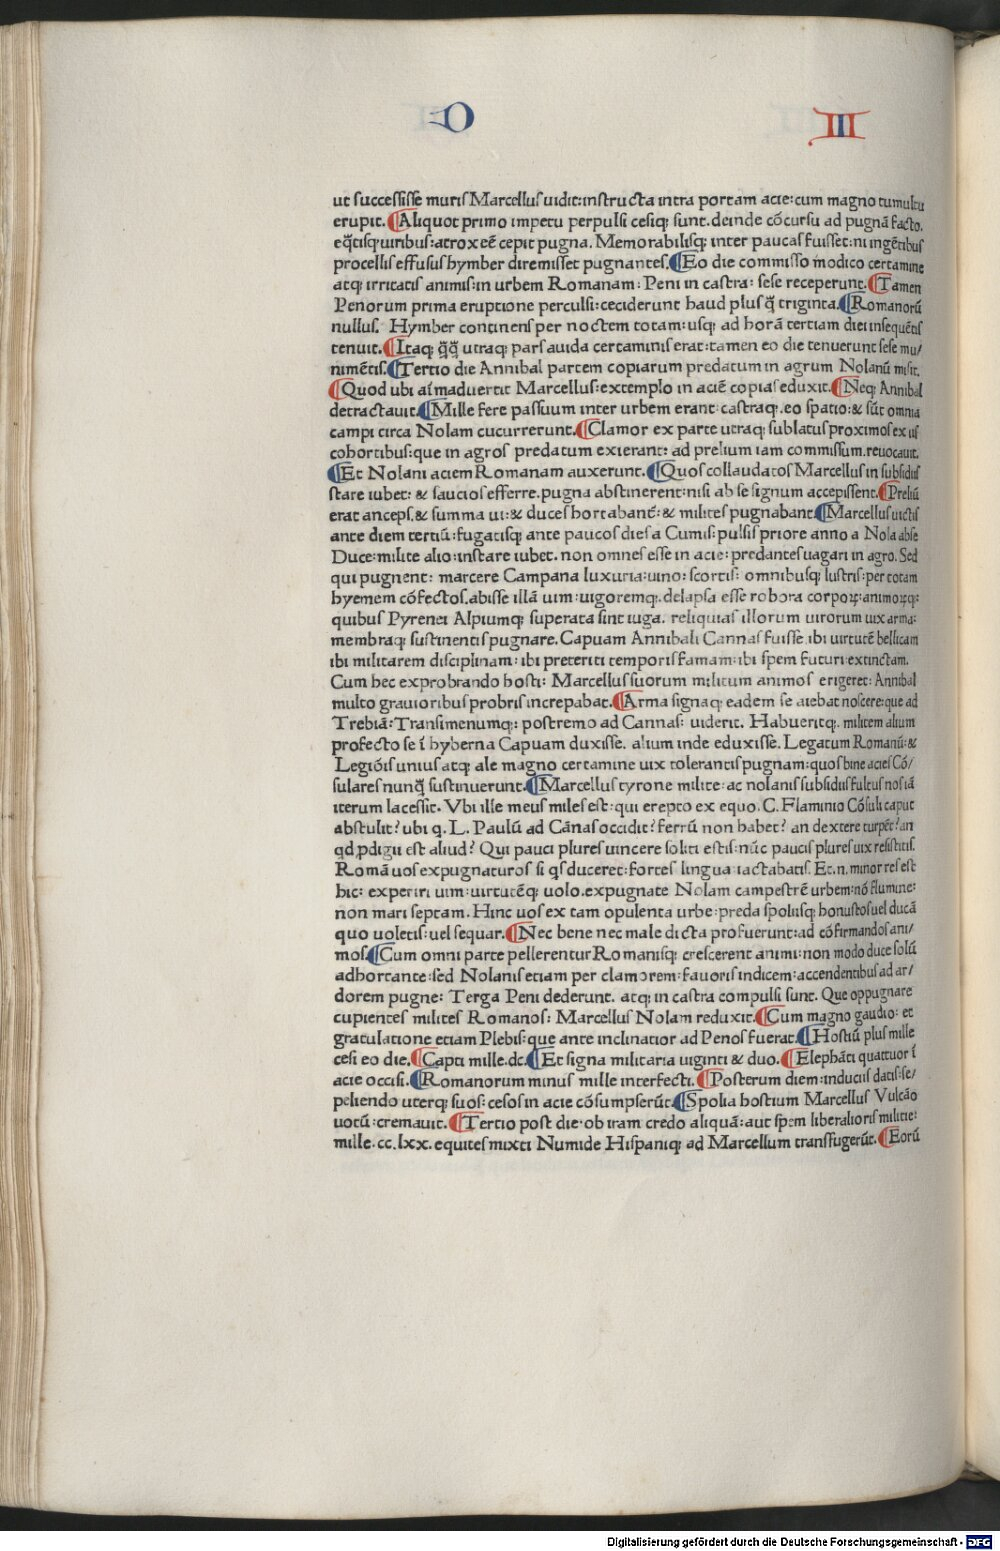 O III
ut successisse muris Marcellus uidit: instructa intra portam acie: cum magno tumultu
erupit. ¶Aliquot primo impetu perpulsi cesiq; sunt. deinde cōcursu ad pugnā facto.
eq̄tisq; uiribus: atrox eē cepit pugna. Memorabilisq; inter paucas fuisset: ni ingētibus
procellis effusus hymber diremisset pugnantes. ¶Eo die commisso modico certamine
atq; irritatis animis: in urbem Romanam: Peni in castra: sese receperunt. ¶Tamen
Penorum prima eruptione perculsi: ceciderunt haud plus q̄ triginta. ¶Romanorū
nullus. Hymber continens per noctem totam: usq; ad horā tertiam diei insequētis
tenuit. ¶Itaq; q̄q̄ utraq; pars auida certaminis erat: tamen eo die tenuerunt sese mu/
nimētis. ¶Tertio die Annibal partem copiarum predatum in agrum Nolanū misit.
¶Quod ubi aīmaduertit Marcellus: extemplo in aciē copias eduxit. ¶Neq; Annibal
detractauit. ¶Mille fere passuum inter urbem erant: castraq;. eo spatio: & sūt omnia
campi circa Nolam cucurrerunt. ¶Clamor ex parte utraq; sublatus proximos ex iis
cohortibus: que in agros predatum exierant: ad prelium iam commissum. reuocauit.
¶Et Nolani aciem Romanam auxerunt. ¶Quos collaudatos Marcellus in subsidiis
stare iubet: & saucios efferre. pugna abstinerent: nisi ab se signum accepissent. ¶Preliū
erat anceps. & summa ui: & duces hortabant̄: & milites pugnabant. ¶Marcellus uictis
ante diem tertiū: fugatisq; ante paucos dies a Cumis: pulsis priore anno a Nola abse
Duce: milite alio: instare iubet. non omnes esse in acie: predantes uagari in agro. Sed
qui pugnent: marcere Campana luxuria: uino: scortis: omnibusq; lustris: per totam
hyemem cōfectos. abisse illā uim: uigoremq;. delapsa esse robora corpoꝝ: animoꝝq;:
quibus Pyrenei Alpiumq; superata sint iuga. reliquias illorum uirorum uix arma:
membraq; sustinentis pugnare. Capuam Annibali Cannas fuisse. ibi uirtutē bellicam
ibi militarem disciplinam: ibi preteriti temporis famam: ibi spem futuri extinctam.
Cum hec exprobrando hosti: Marcellus suorum militum animos erigeret: Annibal
multo grauioribus probris increpabat. ¶Arma signaq; eadem se aiebat noscere: que ad
Trebiā: Transimenumq;: postremo ad Cannas: uiderit. Habueritq;. militem alium
profecto se ī hyberna Capuam duxisse. alium inde eduxisse. Legatum Romanū: &
Legiōis unius atq; ale magno certamine uix tolerantis pugnam: quos bine acies Cō/
sulares nunq̄ sustinuerunt. ¶Marcellus tyrone milite: ac nolanis subsidiis fultus nos iā
iterum lacessit. Vbi ille meus miles est: qui erepto ex equo. C. Flaminio Cōsuli caput
abstulit? ubi q. L. Paulū ad Cānas occidit? ferrū non habet? an dextere turpēt? an
qd ꝓdigii est aliud? Qui pauci plures uincere soliti estis: nūc paucis plures uix resistitis.
Romā uos expugnaturos si q̄s duceret: fortes lingua iactabatis. Et. n. minor res est
hic: experiri uim: uirtutēq; uolo. expugnate Nolam campestrē urbem: nō flumine:
non mari septam. Hinc uos ex tam opulenta urbe: preda spoliisq; honustos uel ducā
quo uoletis: uel sequar. ¶Nec bene nec male dicta profuerunt: ad cōfirmandos ani/
mos. ¶Cum omni parte pellerentur Romanisq; crescerent animi: non modo duce solū
adhortante: sed Nolanis etiam per clamorem: fauoris indicem: accendentibus ad ar/
dorem pugne: Terga Peni dederunt. atq; in castra compulsi sunt. Que oppugnare
cupientes milites Romanos: Marcellus Nolam reduxit. ¶Cum magno gaudio: et
gratulatione etiam Plebis: que ante inclinatior ad Penos fuerat. ¶Hostiū plus mille
cesi eo die. ¶Capti mille. dc. ¶Et signa militaria uiginti & duo. ¶Elephāti quattuor ī
acie occisi. ¶Romanorum minus mille interfecti. ¶Posterum diem: induciis datis: se/
peliendo uterq; suos: cesos in acie cōsumpserūt. ¶Spolia hostium Marcellus Vulcāo
uotū: cremauit. ¶Tertio post die: ob iram credo aliquā: aut spem liberalioris militie:
mille. cc. lxx. equites mixti Numide Hispaniq; ad Marcellum transfugerūt. ¶Eorū
Digitalisierung gefördert durch die Deutsche Forschungsgemeinschaft - DFG